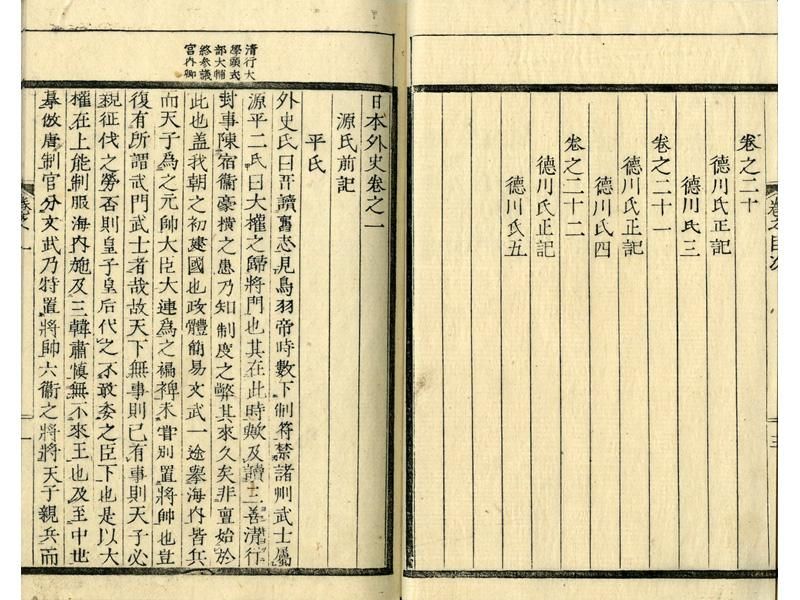 卷之二十
德川氏正記
德川氏三
卷之二十一
德川氏正記
德川氏四
卷之二十二
德川氏正記
德川氏五
清行大
學頭式
部大輔
終參議
宮內卿
日本外史卷之一
源氏前記
平氏
外史氏曰吾讀舊志見鳥羽帝時數下制符禁諸州武士屬
源平二氏曰大權之歸將門也其在此時歟及讀三善清行
封事陳宿衞豪橫之患乃知制度之弊其來久矣非亶始於
此也蓋我朝之初建國也政體簡易文武一途擧海內皆兵
而天子爲之元帥大臣大連爲之褊裨未嘗別置將帥也豈
復有所謂武門武士者哉故天下無事則已有事則天子必
親征伐之勞否則皇子皇后代之不敢委之臣下也是以大
權在上能制服海內施及三韓肅愼無不來王也及至中世
摹倣唐制官分文武乃特置將帥六衞之將將天子親兵而